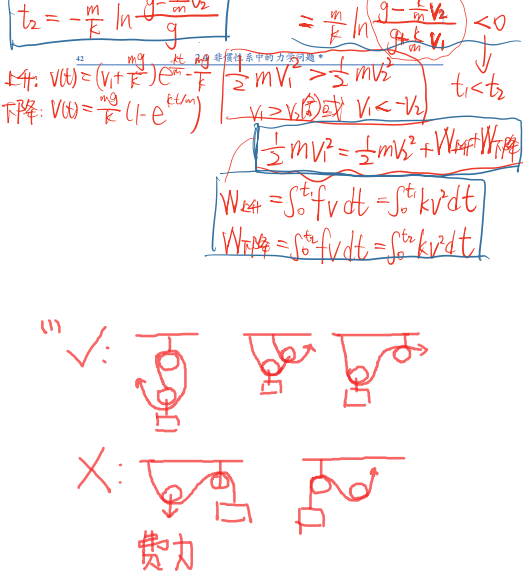 t₂ = -m/k ln (g - k/m v₂)/g
= m/k ln (g - k/m v₂)/(g + k/m v₁) < 0
42 2.9 非惯性系中的力学问题 *
t₁<t₂
上升: v(t) = (v₁ + mg/k) e^(-kt/m) - mg/k
下降: v(t) = mg/k (1 - e^(-kt/m))
1/2 mv₁² > 1/2 mv₂²
v₁ > v₂ 或 v₁ < -v₂
1/2 mv₁² = 1/2 mv₂² + W上升 + W下降
W上升 = ∫₀^t₁ fv dt = ∫₀^t₁ kv² dt
W下降 = ∫₀^t₂ fv dt = ∫₀^t₂ kv² dt
(1)
✓:
X:
费力